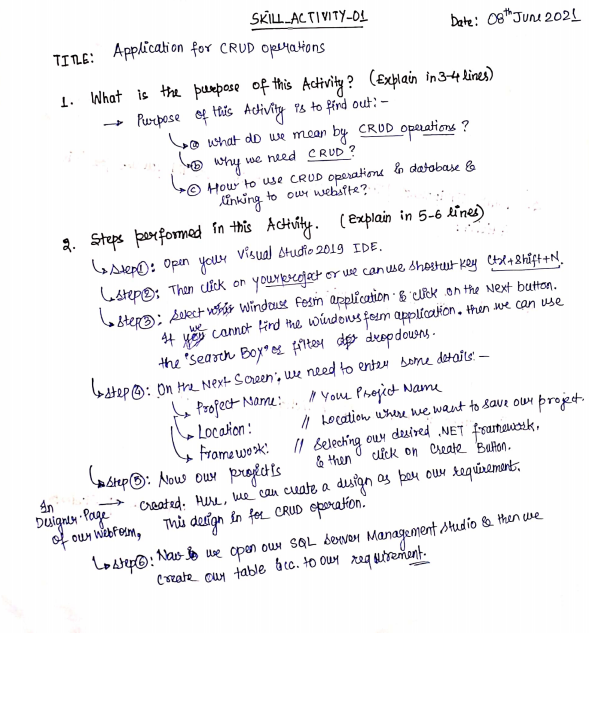 SKILL_ACTIVITY-01
Date: 08th June 2021
TITLE: Application for CRUD operations
1. What is the purpose of this Activity? (Explain in 3-4 lines)
→ Purpose of this Activity is to find out:-
ⓐ what do we mean by CRUD operations?
ⓑ why we need CRUD?
ⓒ How to use CRUD operations in database &
linking to our website?
2. Steps performed in this Activity. (Explain in 5-6 lines)
Step①: Open your Visual Studio 2019 IDE.
Step②: Then click on your project or we can use shortcut key Ctrl+Shift+N.
Step③: Select Windows Form application & click on the Next button.
If we cannot find the windows form application. then we can use
the "Search Box" or filter dropdowns.
Step④: On the Next Screen, we need to enter some details:-
Project Name: // Your Project Name
Location: // Location where we want to save our project.
Framework: // Selecting our desired .NET framework,
& then click on Create Button.
Step⑤: Now our project is
In Designer Page of our WebForm, → created. Here, we can create a design as per our requirement.
This design is for CRUD operation.
Step⑥: Now we open our SQL Server Management Studio & then we
create our table acc. to our requirement.